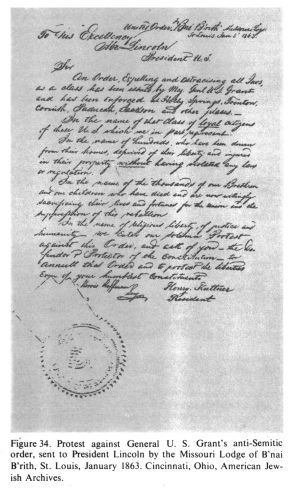 United Order, "Bnai B'rith" Missouri Lodge
St Louis Jan 5th 1863.
To "His" Excellency
Abr. Lincoln
President U.S.
Sir
An Order, Expelling and ostracising all Jews,
as a class has been issued by Maj Genl U.S. Grant
and has been enforced at Holly Springs, Trenton,
Corinth, Paducah, Jackson and other places.—
In the name of that Class of loyal citizens
of these U.S. which we in part represent.
In the name of hundreds, who have been driven
from their homes, deprived of their liberty and injured
in their property without having violated any law
or regulation.
In the name of the thousands of our Brethren
and our children who have died and are now willingly
sacrificing their lives and fortunes for the union and the
suppression of this rebellion
In the name of religious liberty, of justice and
humanity— we enter our solemn Protest
against this Order, and ask of you— the De-
fender & Protector of the Constitution— to
annull that Order and to protect the liberties
even of your humblest Constituents
Henry Kuttner
President
Figure 34. Protest against General U. S. Grant's anti-Semitic
order, sent to President Lincoln by the Missouri Lodge of B'nai
B'rith, St. Louis, January 1863. Cincinnati, Ohio, American Jew-
ish Archives.